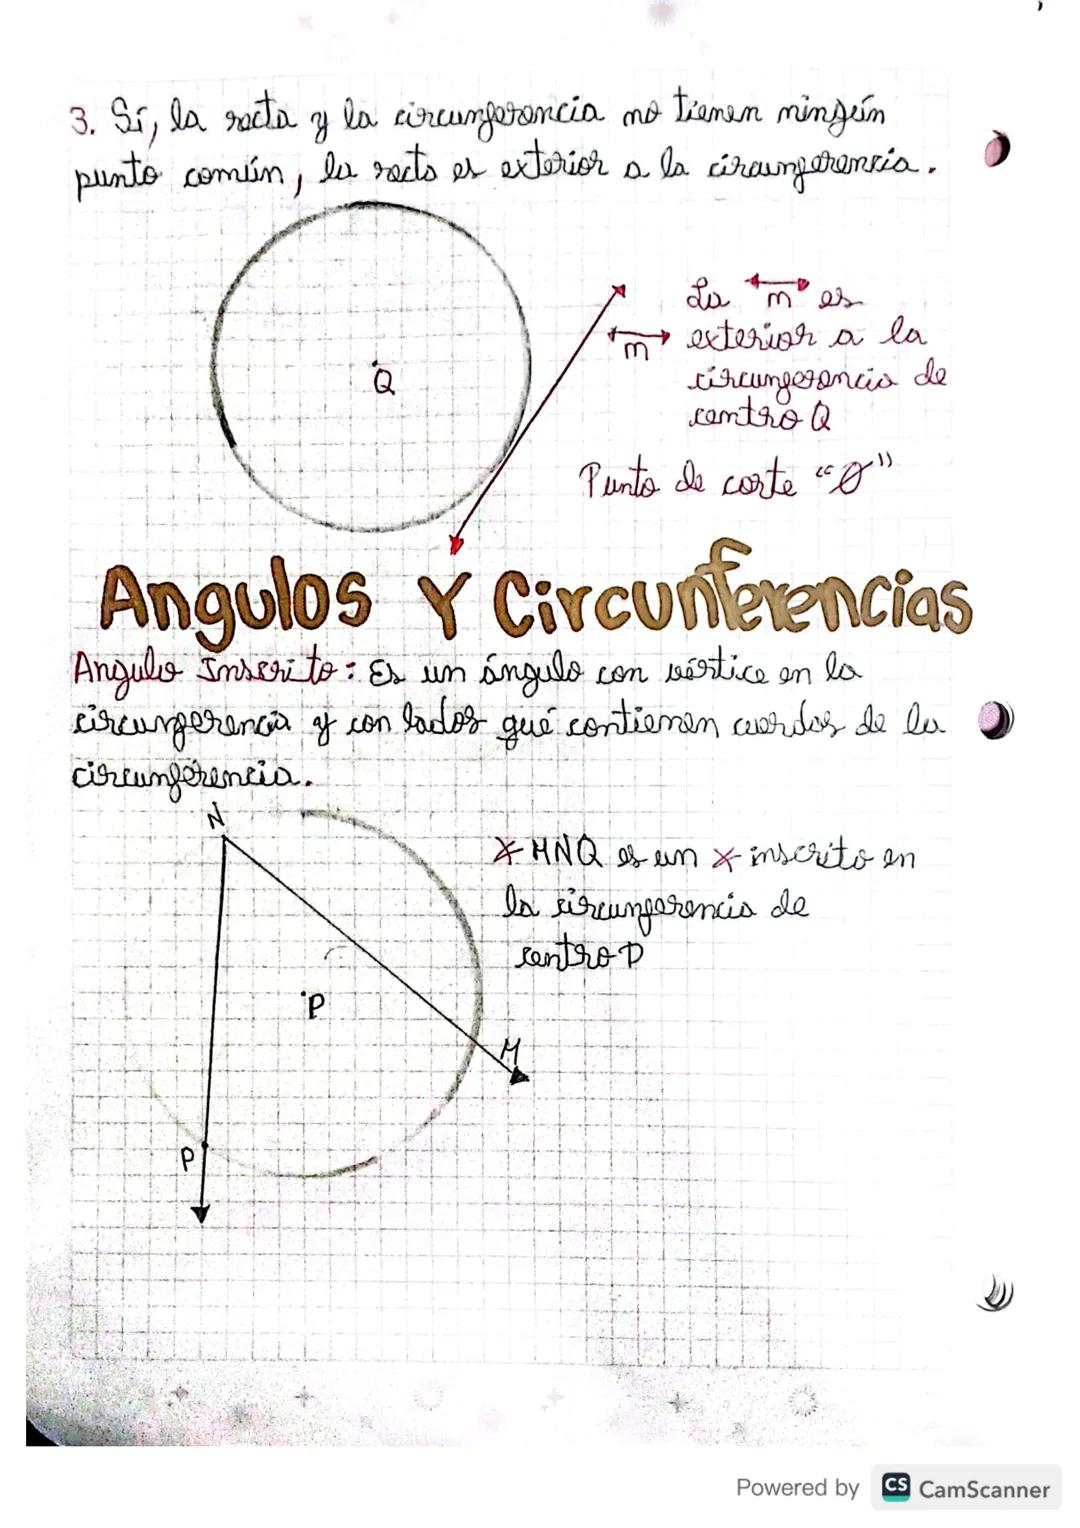 3. Sí, la recta y la circunferencia no tienen ningún
punto común, la recta es exterior a la circunferencia.
Q
m
La m es
exterior a la
circunferencia de
centro Q
Punto de corte “Ø”
Angulos Y Circunferencias
Angulo Inscrito: Es un ángulo con vértice en la
circunferencia y con lados qué contienen cuerdas de la
circunferencia.
N
∢ MNQ es un ∢ inscrito en
la circunferencia de
centro P
P
M
P
Powered by CS CamScanner